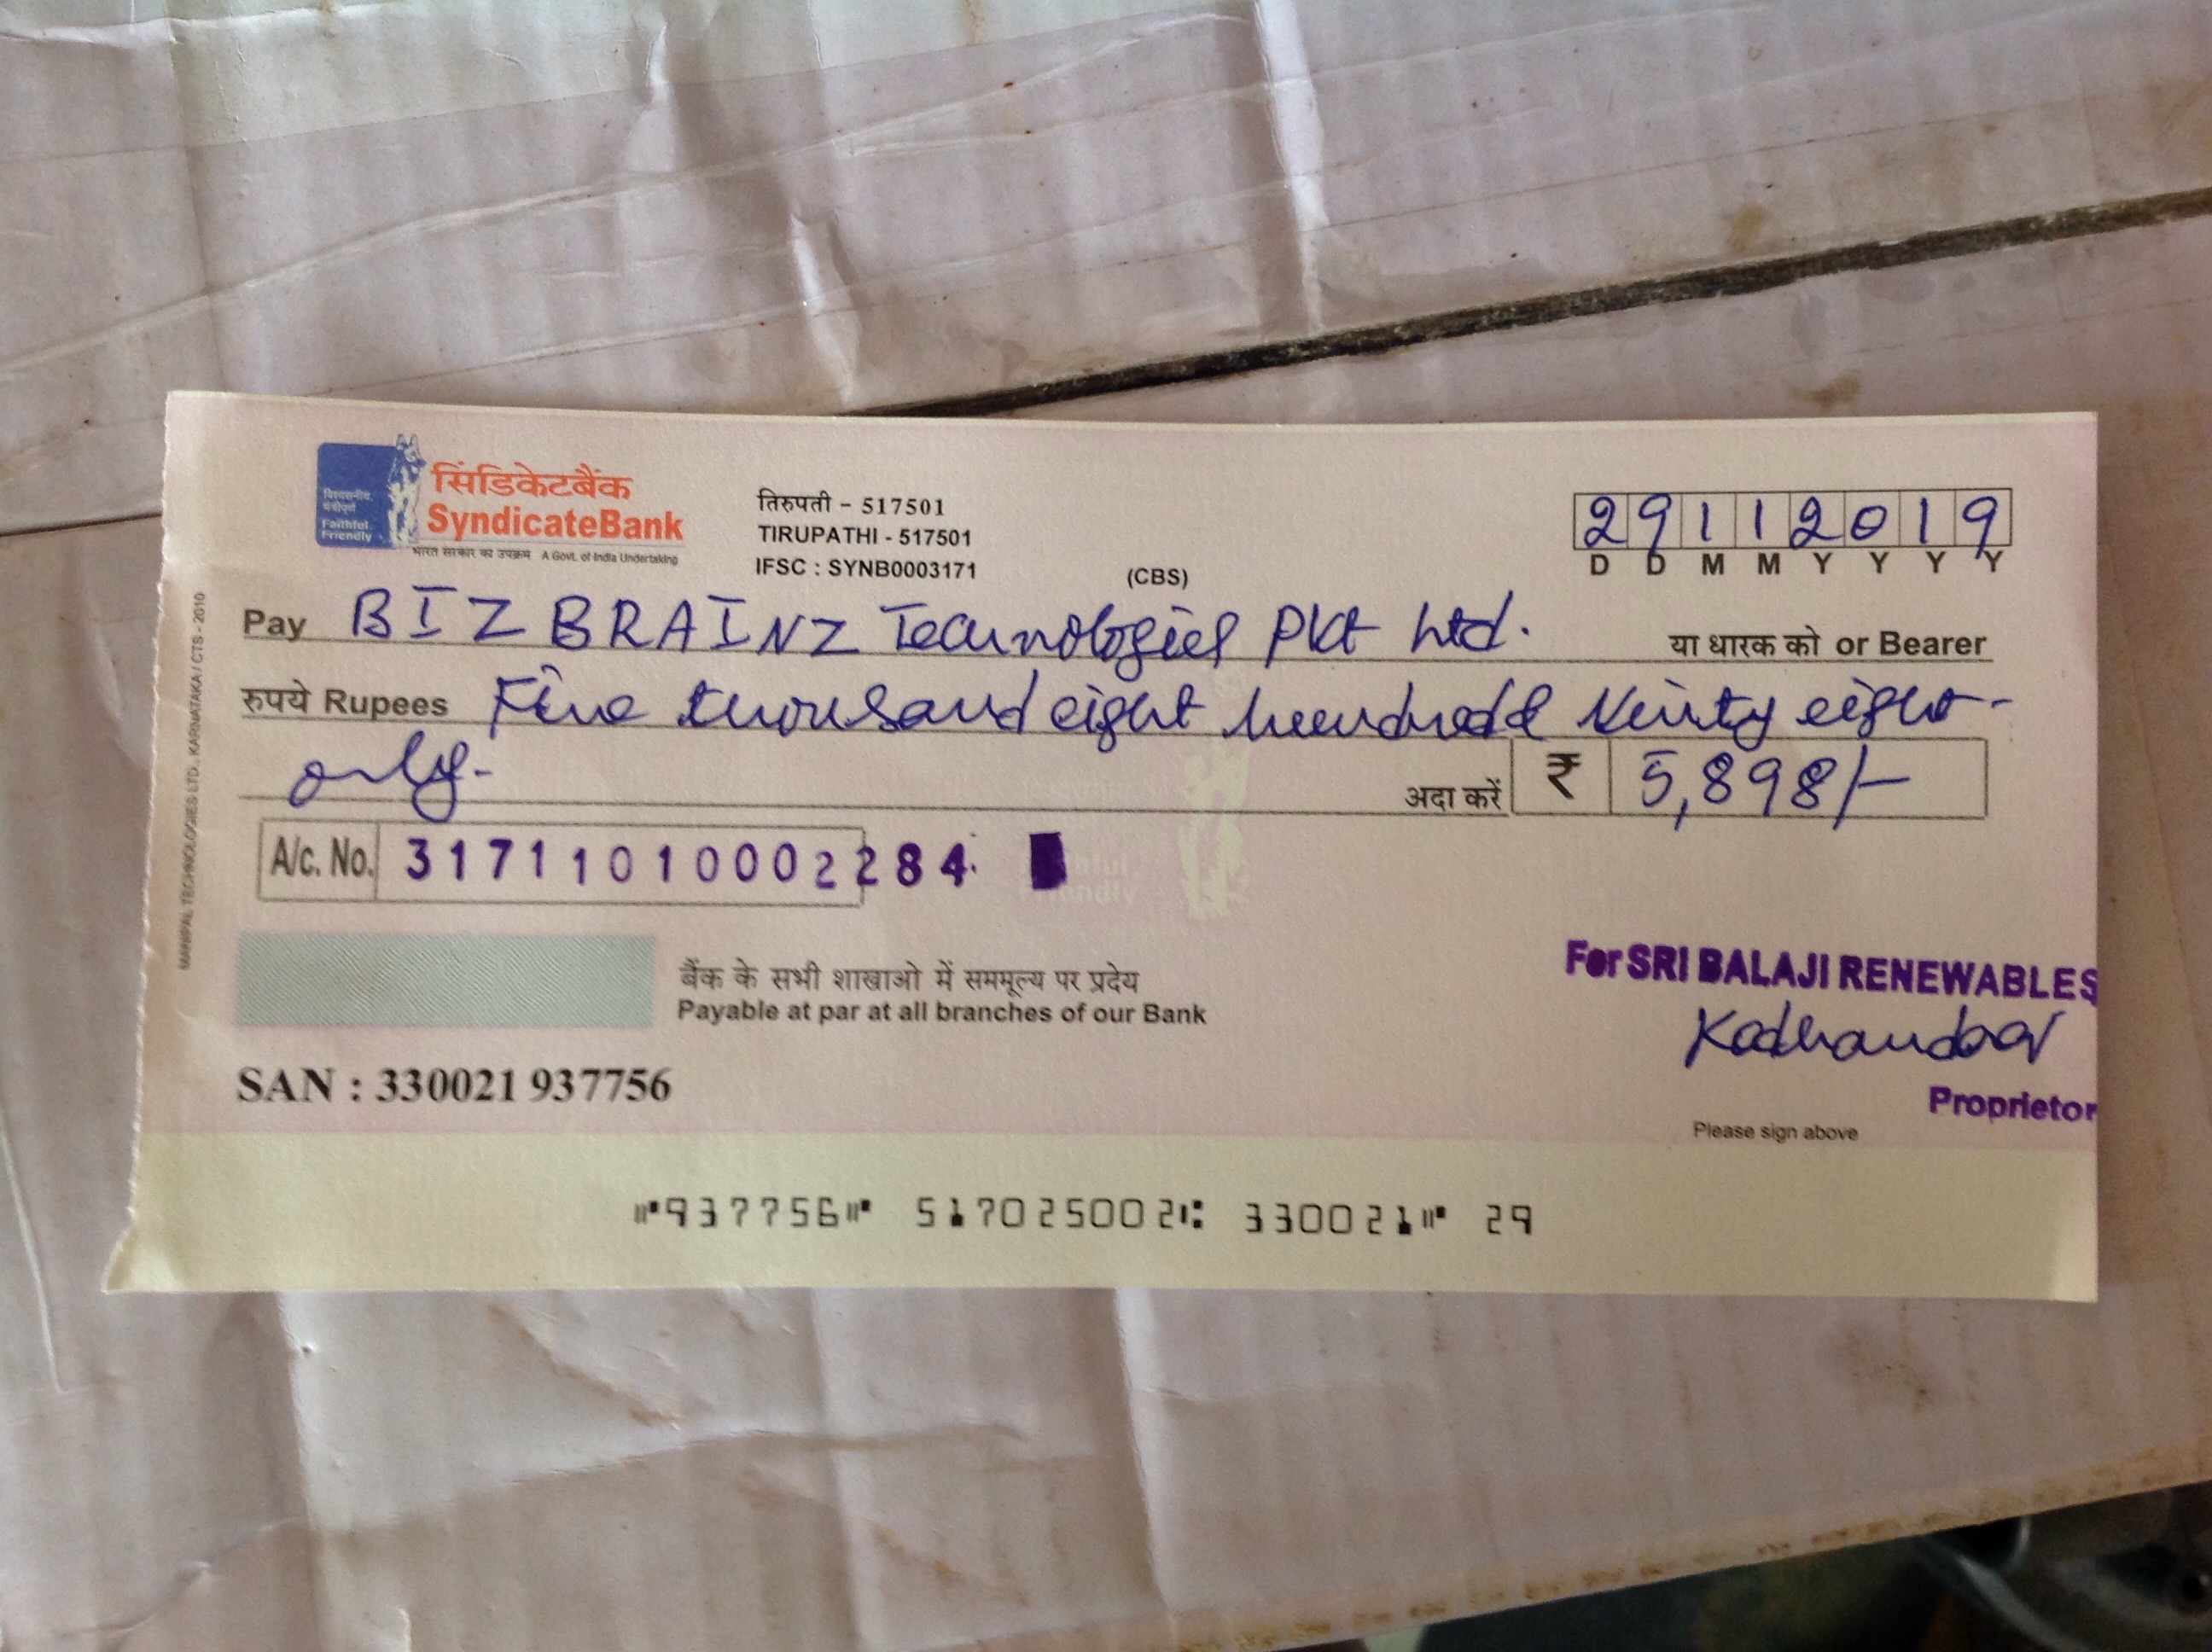 विश्वसनीय, मैत्रीपूर्ण
Faithful, Friendly
सिंडिकेटबैंक
SyndicateBank
भारत सरकार का उपक्रम A Govt. of India Undertaking
तिरुपती - 517501
TIRUPATHI - 517501
IFSC : SYNB0003171
(CBS)
29112019
D D M M Y Y Y Y
Pay BIZBRAINZ Technologies Pvt Ltd. या धारक को or Bearer
रुपये Rupees Five thousand eight hundred Ninty eight-
only- अदा करें ₹ 5,898/-
A/c. No. 31711010002284
बैंक के सभी शाखाओ में सममूल्य पर प्रदेय
Payable at par at all branches of our Bank
For SRI BALAJI RENEWABLES
Proprietor
SAN : 330021 937756
Please sign above
⑈937756⑈ 517025002⑆ 330021⑈ 29
MANIPAL TECHNOLOGIES LTD., KARNATAKA / CTS - 2010